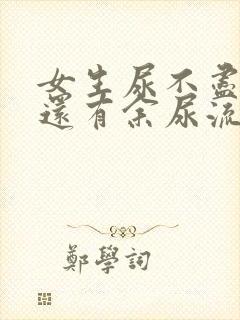 女生尿不盡
還有余尿流
鄭學詞